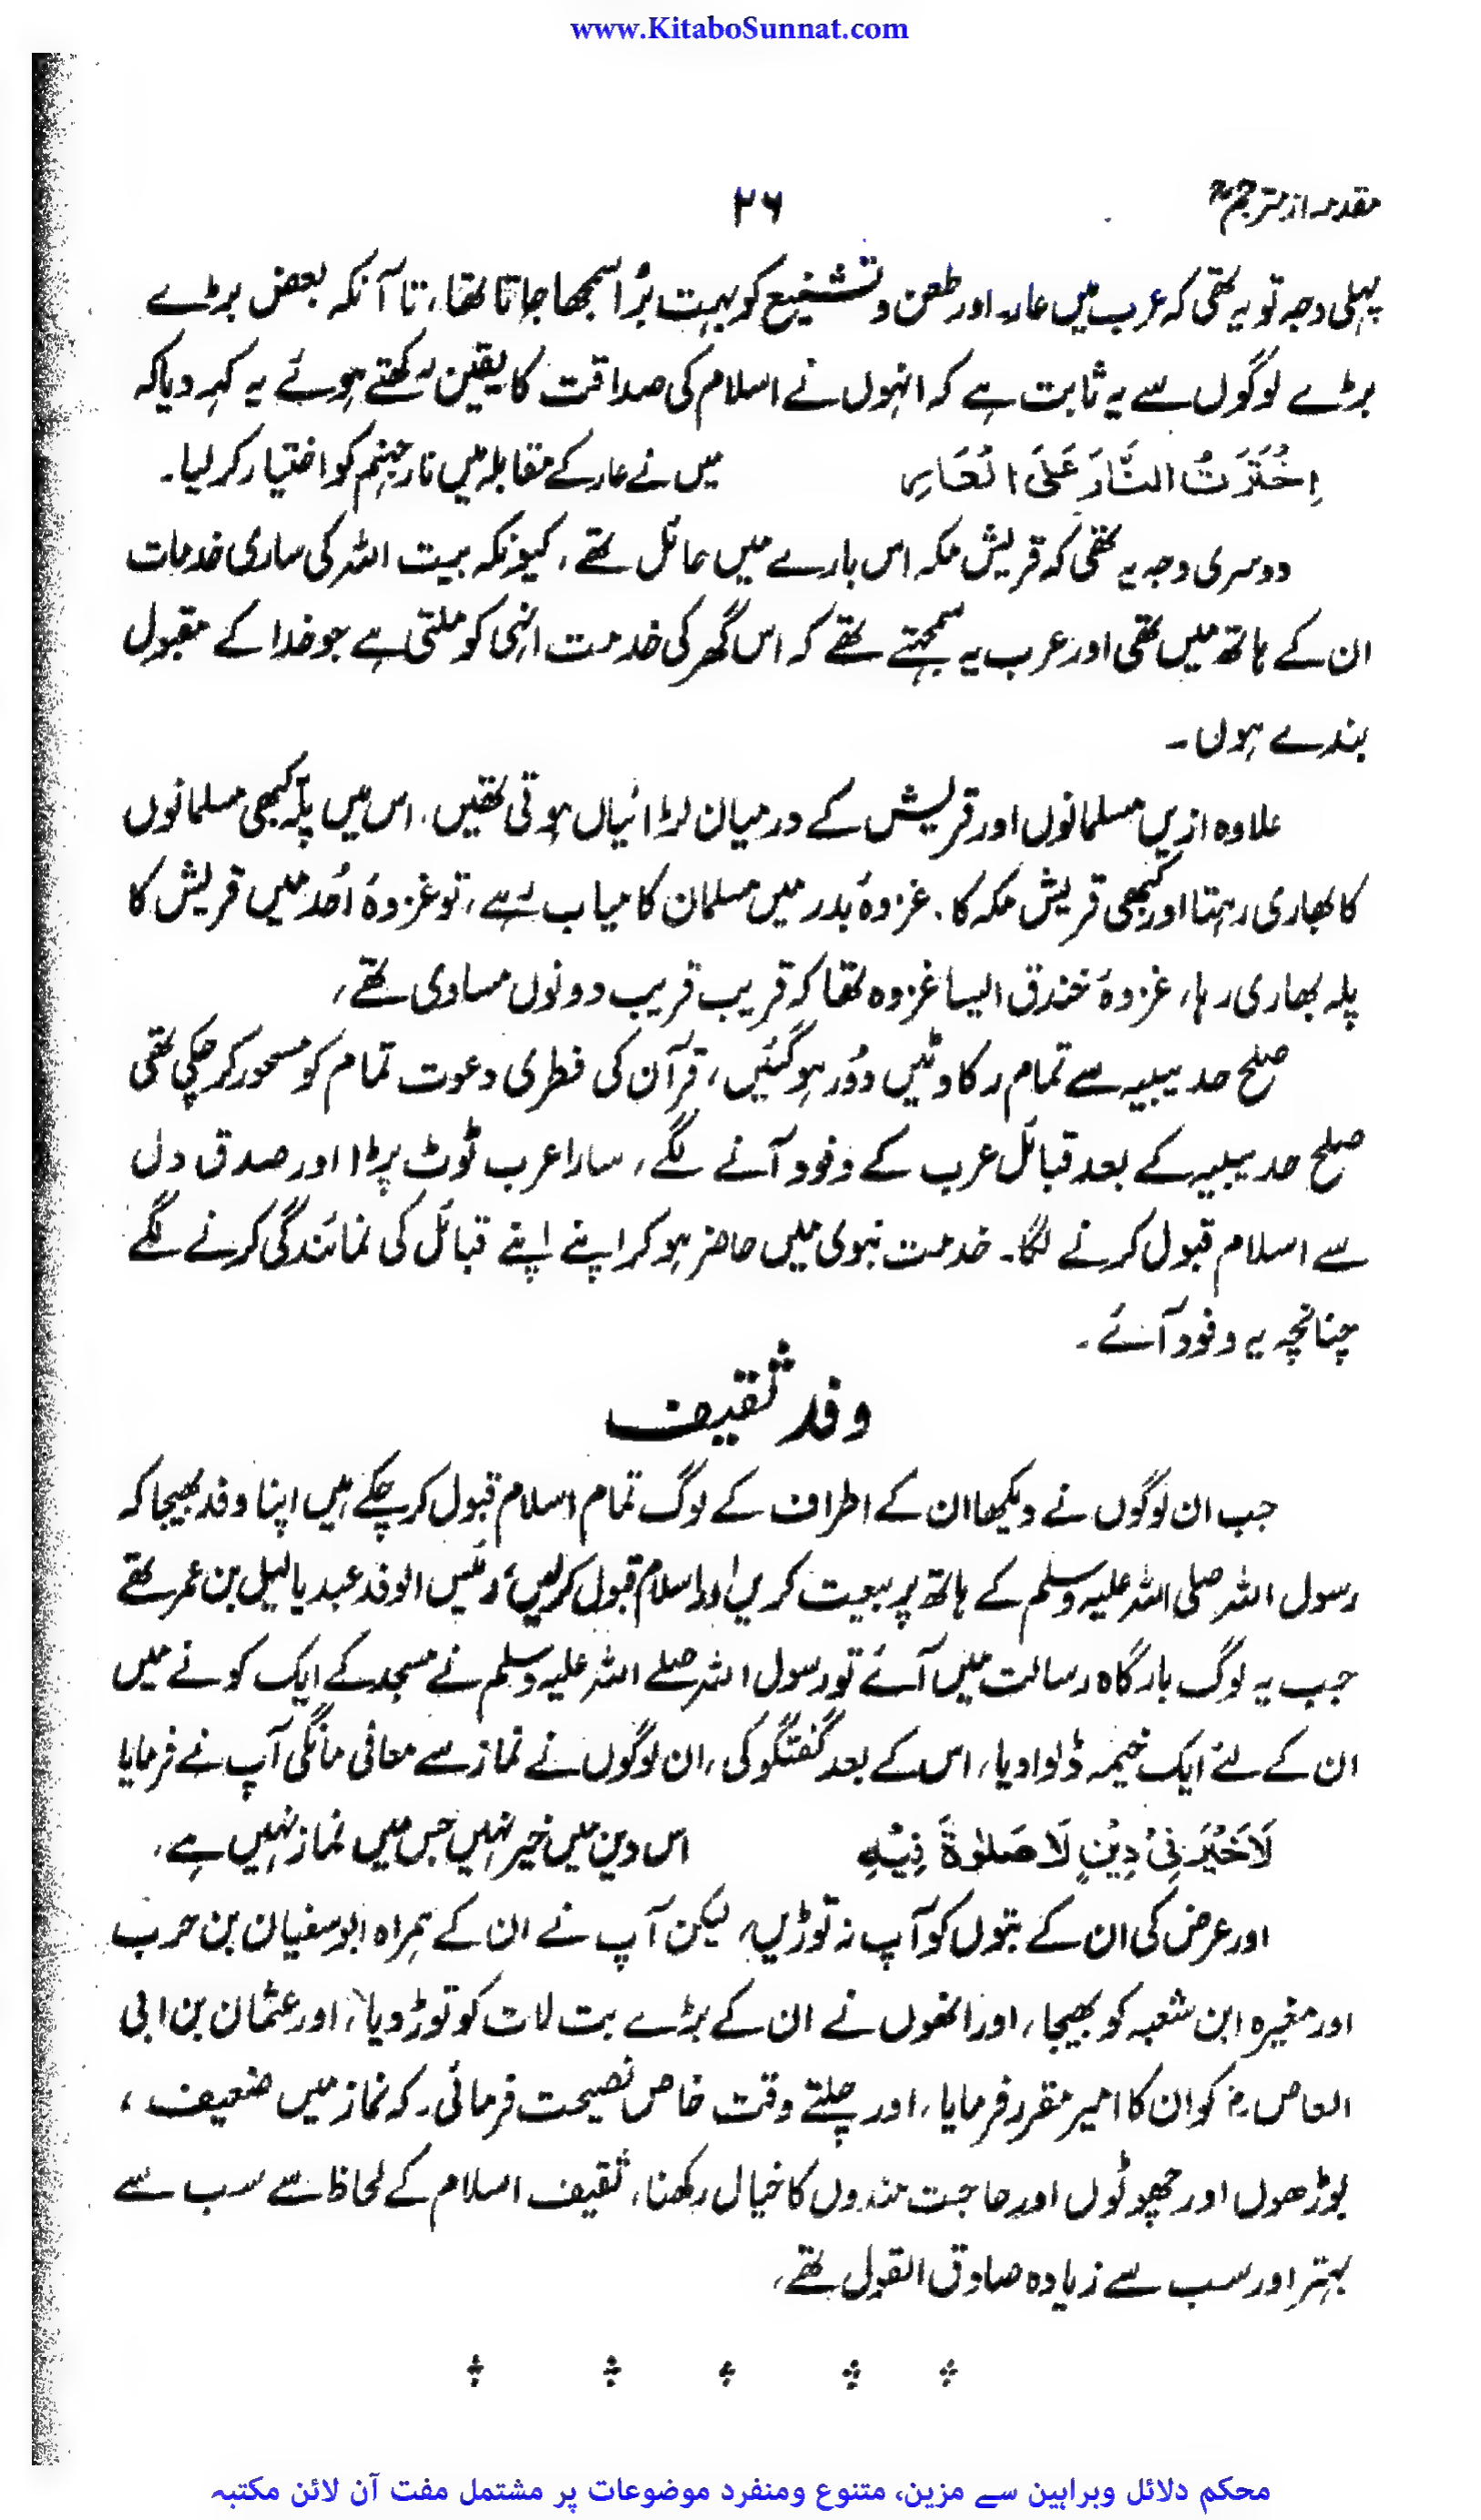 www.KitaboSunnat.com
مقدمہ از مترجم
۲۶
پہلی وجہ تو یہ تھی کہ عرب میں عار اور طعن و تشنیع کو بہت بُرا سمجھا جاتا تھا، تا آنکہ بعض بڑے
بڑے لوگوں سے یہ ثابت ہے کہ انہوں نے اسلام کی صداقت کا یقین رکھتے ہوئے یہ کہہ دیا کہ
اِخْتَرْتُ النَّارَ عَلَی الْعَارِ میں نے عار کے مقابلہ میں نار جہنم کو اختیار کر لیا۔
دوسری وجہ یہ تھی کہ قریش مکہ اس بارے میں حائل تھے، کیونکہ بیت اللہ کی ساری خدمات
ان کے ہاتھ میں تھی اور عرب یہ سمجہتے تھے کہ اس گھر کی خدمت انہی کو ملتی ہے جو خدا کے مقبول
بندے ہوں۔
علاوہ ازیں مسلمانوں اور قریش کے درمیان لڑائیاں ہوتی تھیں، اس میں پلہ کبھی مسلمانوں
کا بھاری رہتا اور کبھی قریش مکہ کا، غزوۂ بدر میں مسلمان کامیاب رہے، تو غزوۂ اُحد میں قریش کا
پلہ بھاری رہا، غزوۂ خندق ایسا غزوہ تھا کہ قریب قریب دونوں مساوی تھے،
صلح حدیبیہ سے تمام رکاوٹیں دُور ہو گئیں، قرآن کی فطری دعوت تمام کو مسحور کر چکی تھی
صلح حدیبیہ کے بعد قبائل عرب کے وفود آنے لگے، سارا عرب ٹوٹ پڑا اور صدق دل
سے اسلام قبول کرنے لگا۔ خدمت نبوی میں حاضر ہو کر اپنے اپنے قبائل کی نمائندگی کرنے لگے
چنانچہ یہ وفود آئے۔
وفد ثقیف
جب ان لوگوں نے دیکھا ان کے اطراف کے لوگ تمام اسلام قبول کر چکے ہیں اپنا وفد بھیجا کہ
رسول اللہ صلی اللہ علیہ وسلم کے ہاتھ پر بیعت کریں اور اسلام قبول کریں، رئیس الوفد عبد یا لیل بن عمر تھے
جب یہ لوگ بارگاہ رسالت میں آئے تو رسول اللہ صلے اللہ علیہ وسلم نے مسجد کے ایک کونے میں
ان کے لئے ایک خیمہ ڈلوا دیا، اس کے بعد گفتگو کی، ان لوگوں نے نماز سے معافی مانگی آپ نے فرمایا
لَاخَیْرَ فِیْ دِیْنٍ لَا صَلٰوۃَ فِیْہِ اس دین میں خیر نہیں جس میں نماز نہیں ہے،
اور عرض کی ان کے بتوں کو آپ نہ توڑیں، لیکن آپ نے ان کے ہمراہ ابو سفیان بن حرب
اور مغیرہ ابن شعبہ کو بھیجا، اور انھوں نے ان کے بڑے بت لات کو توڑ دیا، اور عثمان بن ابی
العاص رض کو ان کا امیر مقرر فرمایا، اور چلتے وقت خاص نصیحت فرمائی، کہ نماز میں ضعیف،
بوڑھوں اور چھوٹوں اور حاجت مندوں کا خیال رکھنا، ثقیف اسلام کے لحاظ سے سب سے
بہتر اور سب سے زیادہ صادق القول تھے،
محکم دلائل وبراہین سے مزین، متنوع ومنفرد موضوعات پر مشتمل مفت آن لائن مکتبہ